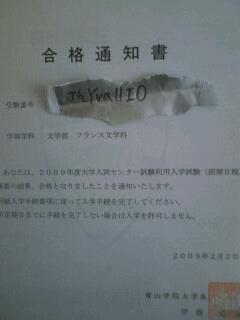 合格通知書
JhYvallIO
受験番号
学部学科 文学部 フランス文学科
あなたは、2009年度大学入試センター試験利用入学試験(前期日程)
審査の結果、合格となりましたことを通知いたします。
別紙入学手続要項に従って入学手続を完了してください。
指定期日までに手続を完了しない場合は入学を許可しません。
2009年2月20
青山学院大学長
伊藤